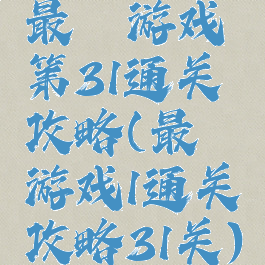 最 游戏
第31通关
攻略(最
游戏1通关
攻略31关)